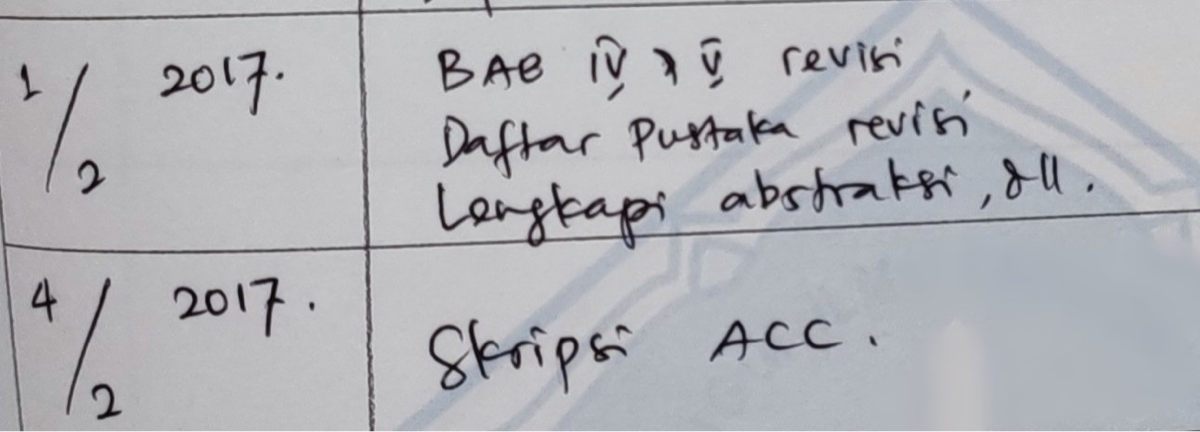 1/2 2017.
BAB IV & V revisi
Daftar Pustaka revisi
Lengkapi abstraksi, dll.
4/2 2017.
Skripsi ACC.